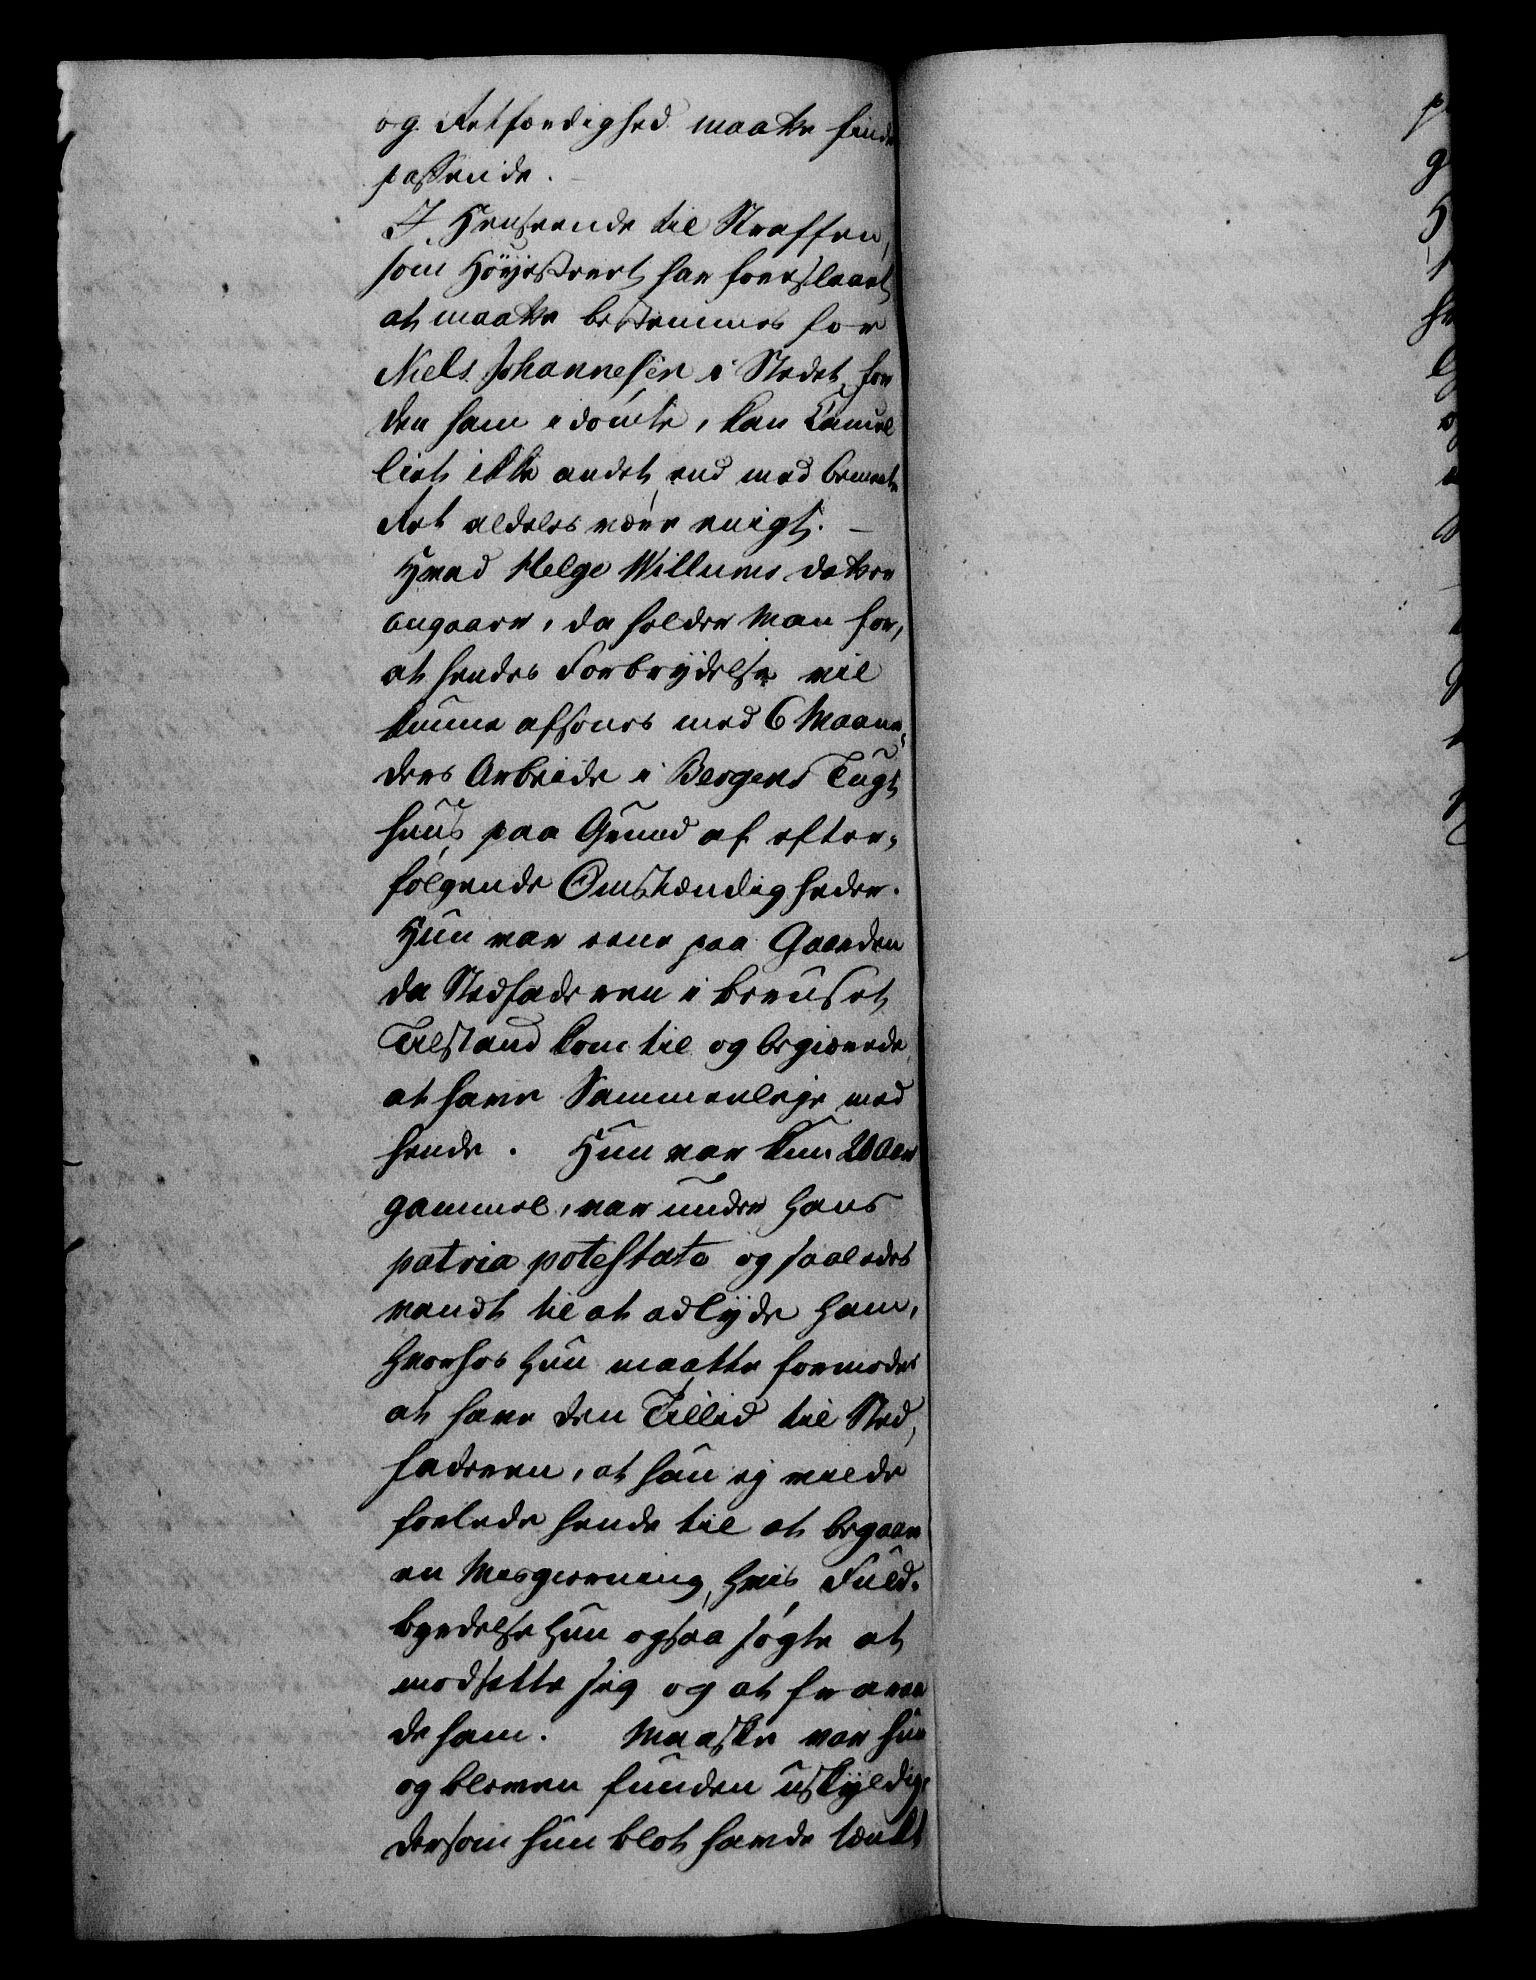 og Retfærdighed maatte finde
passende. –
I Henseende til Straffen,
som Höyesteret har foreslaaet
at maatte bestemmes for
Niels Johannesen i Stedet for
den ham idömte, kan Cancel
liet ikke andet, end med bemeldte
Ret aldeles være enigt. –
Hvad Helge Willums datter
angaaer, da holder Man for,
at hendes Forbrydelse vil
kunne afsones med 6 Maane-
ders Arbeide i Bergens Tugt
huus, paa Grund af efter-
følgende Omstændigheder.
Hun var eene paa Gaarden
da Stedfaderen i beruset
Tilstand kom til og begiærede
at have Sammenleje med
hende. Hun var kun 20 Aar
gammel, var under hans
patria potestate og saaledes
vandt til at adlyde ham,
hvorhos hun maatte formodes
at have den Tillid til Sted,
faderen, at han ej vilde
forlede hende til at begaae
en Misgierning, hvis Fuld-
byrdelse hun ogsaa søgte at
modsætte sig og at fraraa
de ham. Maaskee var hun
og bleven funden uskyldig,
dersom hun blot havde tænkt